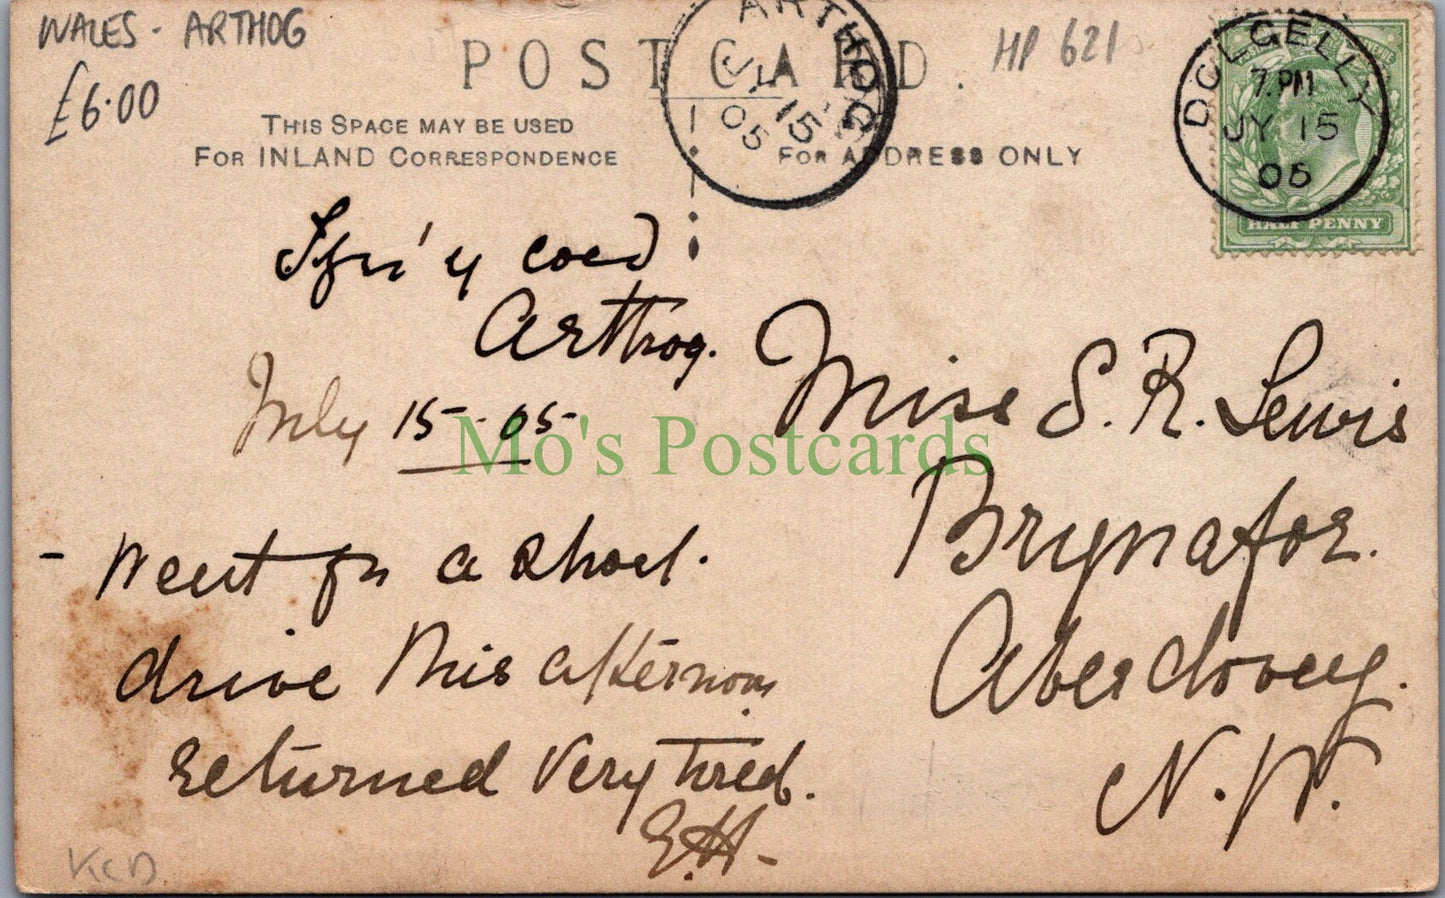 WALES - ARTHOG
£6.00
HP 621
POST CARD.
THIS SPACE MAY BE USED
FOR INLAND CORRESPONDENCE
FOR ADDRESS ONLY
ARTHOG
JY 15
05
DOLGELLY
7. PM
JY 15
05
HALF PENNY
'y coed
Arthog.
July 15 - 05
Went for a short
drive this afternoon
returned very tired.
E.H-
Miss S. R. Lewis
Brynafor.
Aberdovey.
N. W.
Mo's Postcards
KCD